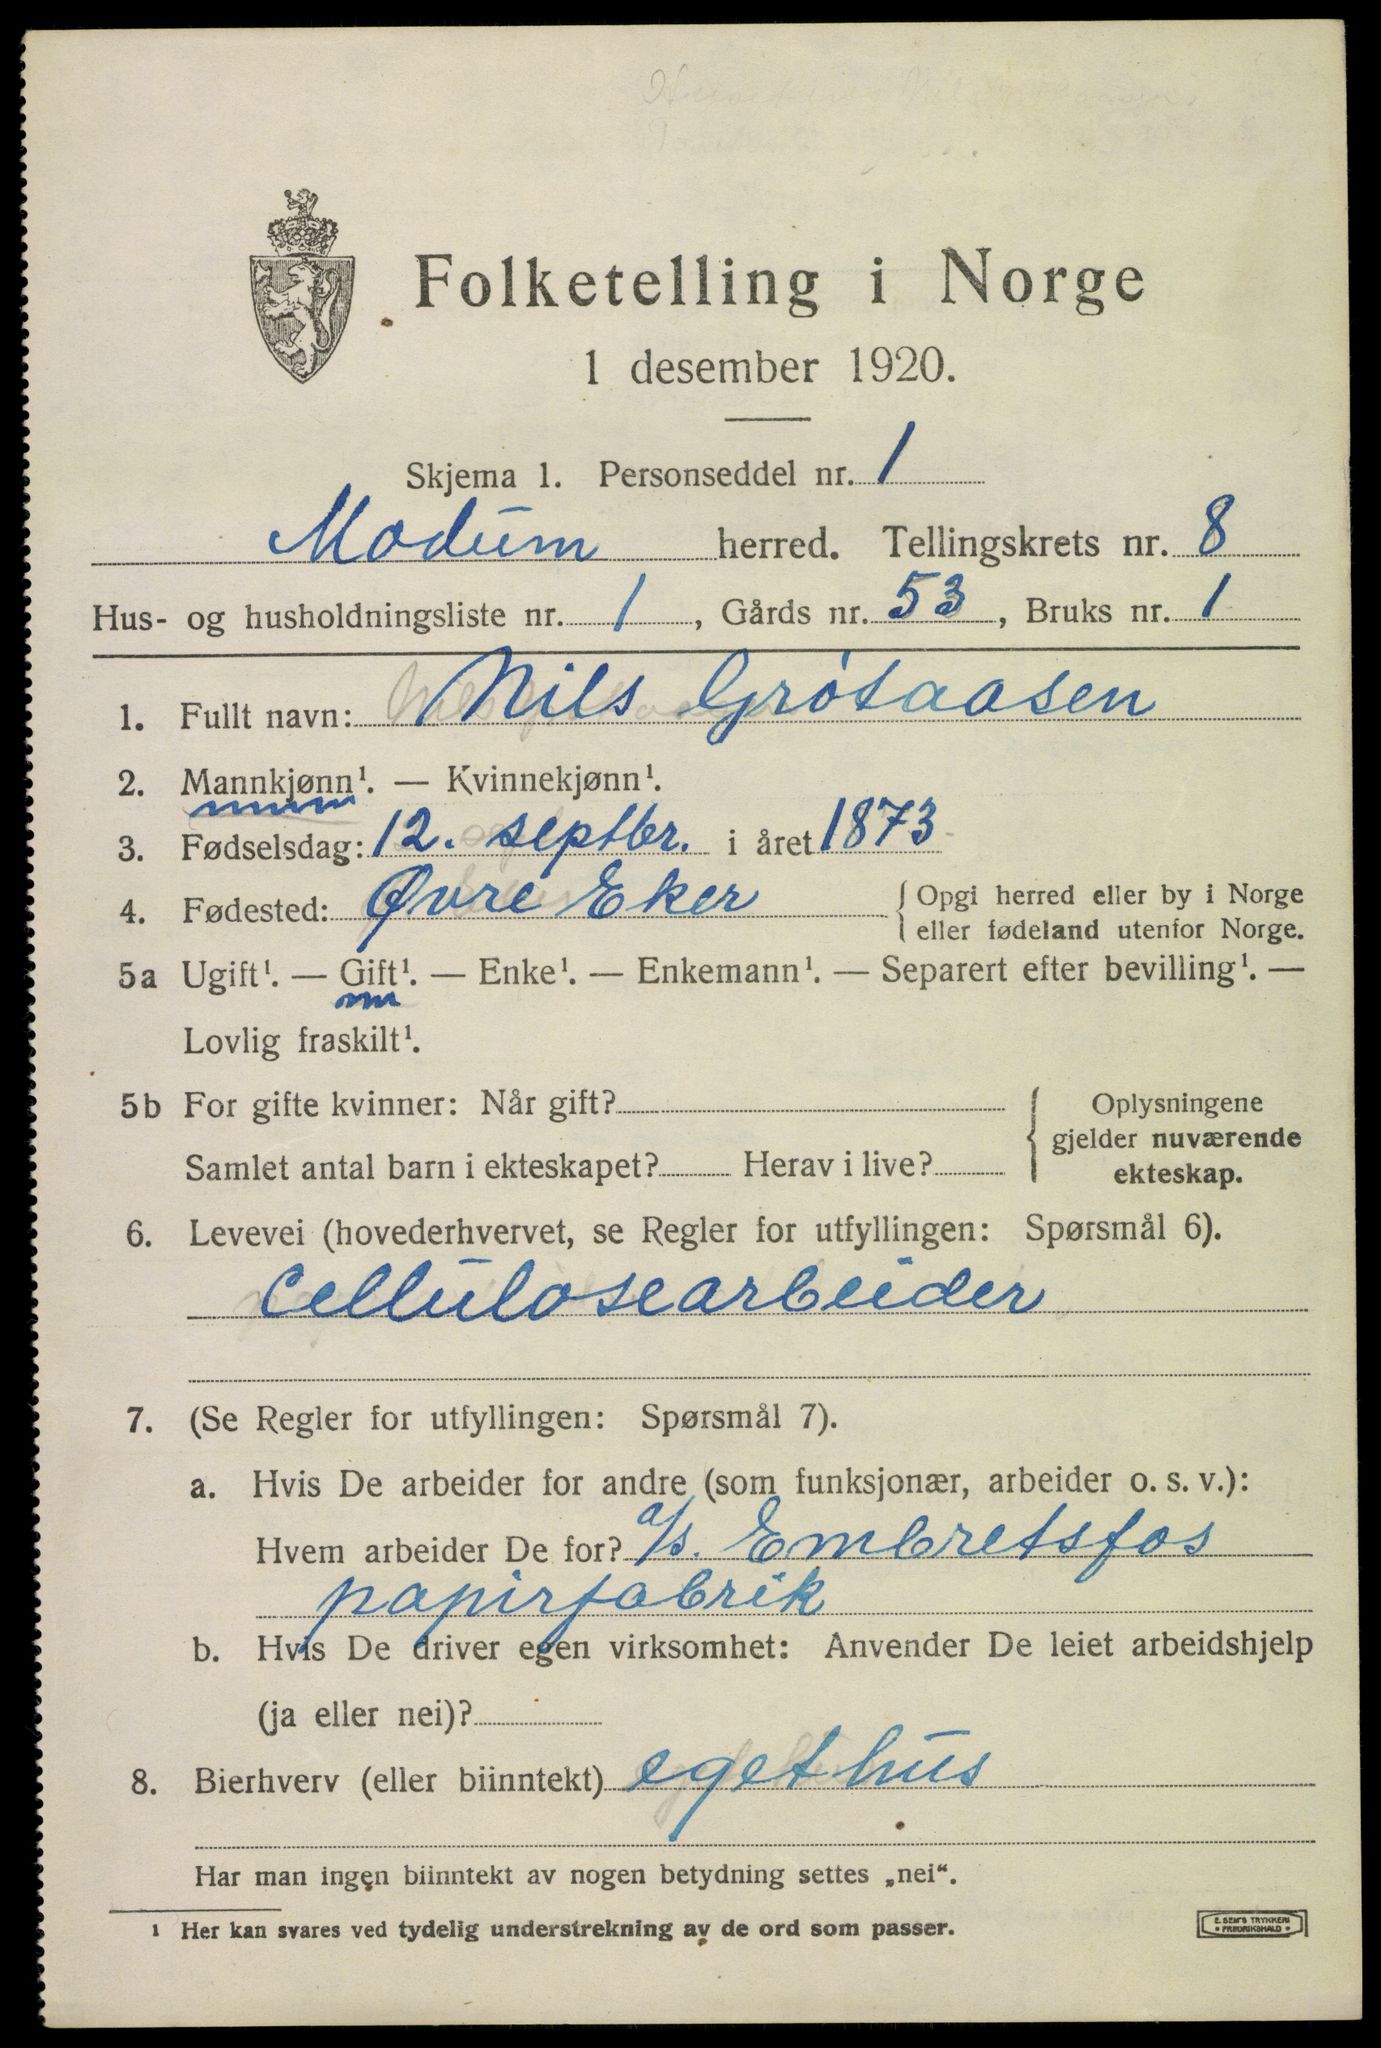 Folketelling i Norge
1 desember 1920.
Skjema 1. Personseddel nr. 1
Modum herred. Tellingskrets nr. 8
Hus- og husholdningsliste nr. 1, Gårds nr. 53, Bruks nr. 1
1. Fullt navn: Nils Grøtaasen
2. Mannkjønn¹. — Kvinnekjønn¹.
3. Fødselsdag: 12. septbr. i året 1873
4. Fødested: Øvre Eker { Opgi herred eller by i Norge
eller fødeland utenfor Norge.
5a Ugift¹. — Gift¹. — Enke¹. — Enkemann¹. — Separert efter bevilling¹. —
Lovlig fraskilt¹.
5b For gifte kvinner: Når gift? { Oplysningene
gjelder nuværende
Samlet antal barn i ekteskapet? Herav i live?
ekteskap.
6. Levevei (hovederhvervet, se Regler for utfyllingen: Spørsmål 6).
Cellulosearbeider
7. (Se Regler for utfyllingen: Spørsmål 7).
a. Hvis De arbeider for andre (som funksjonær, arbeider o. s. v.):
Hvem arbeider De for? a/s. Embretsfos
papirfabrik
b. Hvis De driver egen virksomhet: Anvender De leiet arbeidshjelp
(ja eller nei)?
8. Bierhverv (eller biinntekt) eget hus
Har man ingen biinntekt av nogen betydning settes „nei“.
¹ Her kan svares ved tydelig understrekning av de ord som passer.
E. SEM'S TRYKKERI
• FREDRIKSHALD •